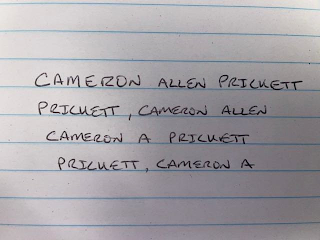 CAMERON ALLEN PRICKETT
PRICKETT, CAMERON ALLEN
CAMERON A PRICKETT
PRICKETT, CAMERON A